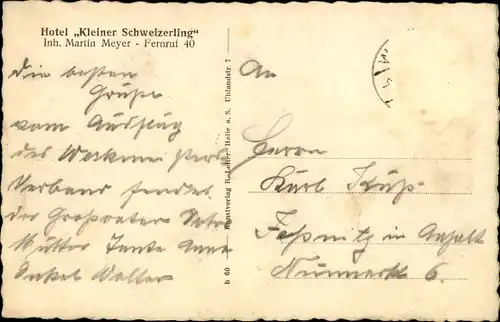 Hotel „Kleiner Schweizerling"
Inh. Martin Meyer - Fernruf 40
Die besten
Grüße
vom Ausflug
des Werkmeisters
Verband sendet
der Großvater
Mutter Tante Anna
Onkel Walter
h 60 Kunstverlag R. Lederer Halle a. S. Uhlandstr 7
An
Herrn
Kurt
in Anhalt
Neumarkt 6.